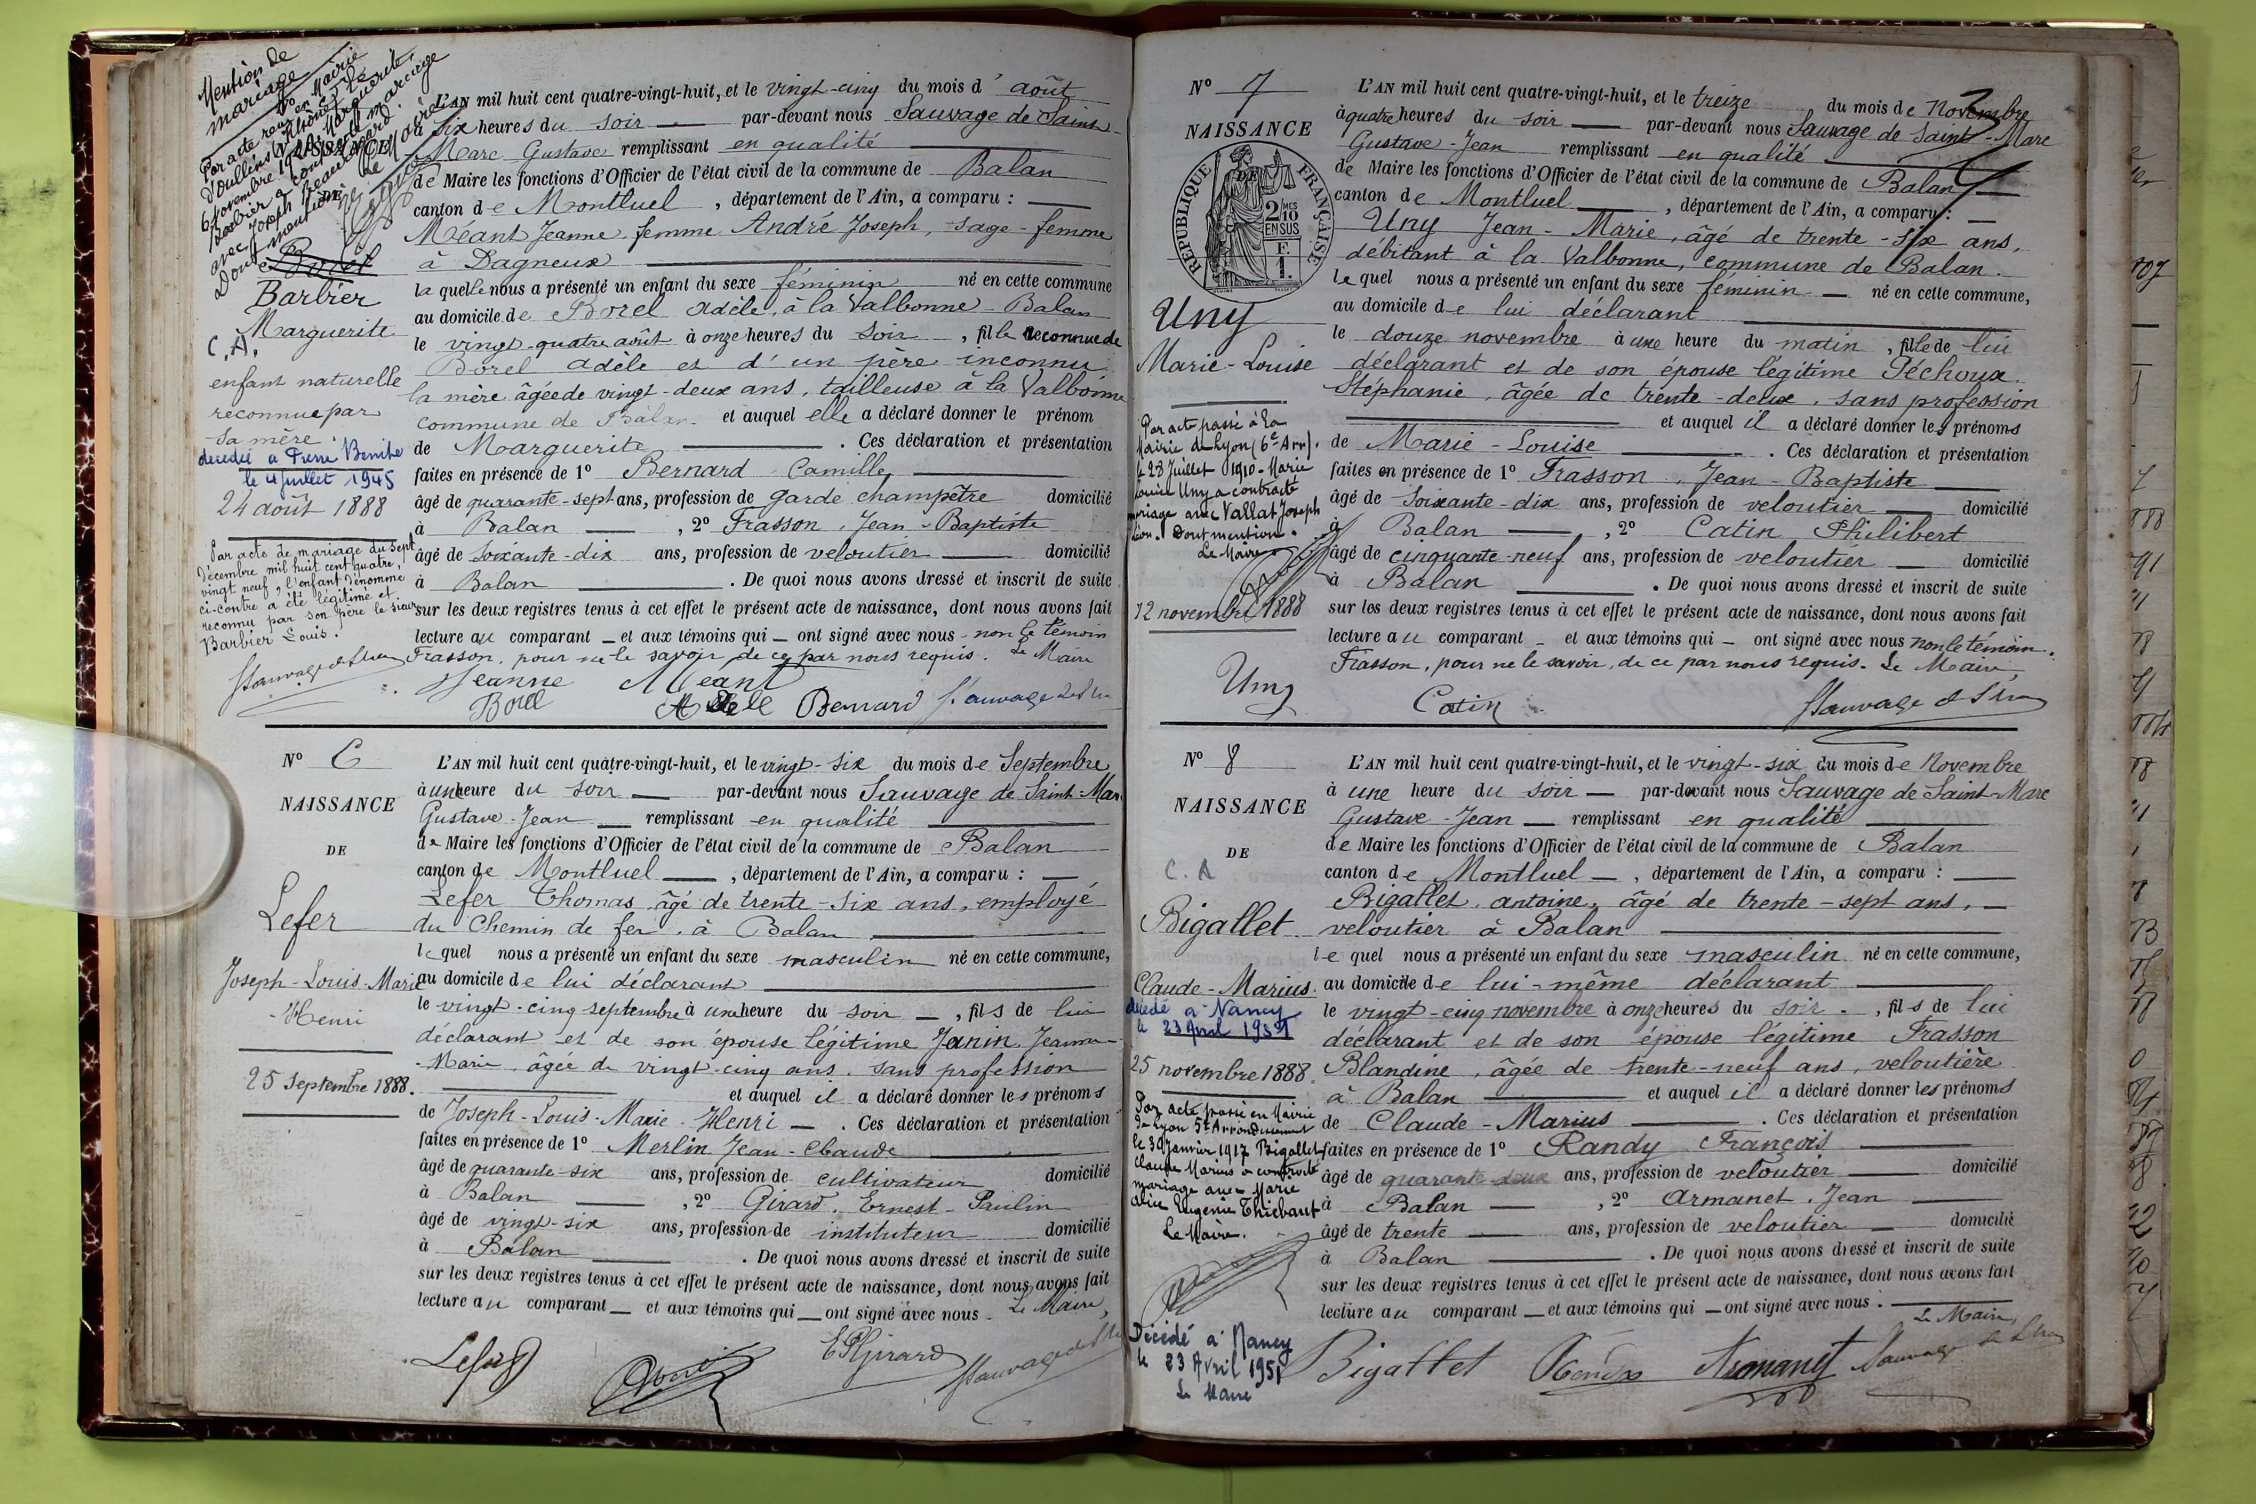 Mention de
mariage
Par acte reçu en Mairie
d'Oullins (Rhône) le
6 novembre 1920, Marguerite
Barbier a contracté mariage
avec Joseph
Dont mention. Le Maire
NAISSANCE
DE
Borel
Barbier
Marguerite
C. A.
enfant naturelle
reconnue par
sa mère.
décédée à Pierre Bénite
le 4 juillet 1945
24 août 1888
Par acte de mariage du sept
décembre mil huit cent quatre
vingt neuf, l'enfant dénommé
ci-contre a été légitimé et
reconnu par son père le sieur
Barbier Louis.
L'AN mil huit cent quatre-vingt-huit, et le vingt-cinq du mois d'août
à six heures du soir — par-devant nous Sauvage de Saint-
Marc Gustave remplissant en qualité
de Maire les fonctions d'Officier de l'état civil de la commune de Balan
canton de Montluel, département de l'Ain, a comparu :
Méant Jeanne femme André Joseph, sage-femme
à Dagneux
laquelle nous a présenté un enfant du sexe féminin né en cette commune
au domicile de Borel Adèle, à la Valbonne - Balan
le vingt-quatre août à onze heures du soir, fille reconnue de
Borel Adèle et d'un père inconnu
la mère âgée de vingt-deux ans, tailleuse à la Valbonne
commune de Balan. et auquel elle a déclaré donner le prénom
de Marguerite . Ces déclaration et présentation
faites en présence de 1° Bernard Camille
âgé de quarante-sept ans, profession de garde champêtre domicilié
à Balan , 2° Frasson, Jean-Baptiste
âgé de soixante-dix ans, profession de veloutier domicilié
à Balan . De quoi nous avons dressé et inscrit de suite
sur les deux registres tenus à cet effet le présent acte de naissance, dont nous avons fait
lecture au comparant — et aux témoins qui — ont signé avec nous - non le témoin
Frasson, pour ne le savoir, de ce par nous requis. Le Maire
Jeanne Méant
Borel Adèle Bernard
N° 6
NAISSANCE
DE
Lefer
Joseph-Louis-Marie
-Henri
25 Septembre 1888.
L'AN mil huit cent quatre-vingt-huit, et le vingt-six du mois de Septembre
à une heure du soir — par-devant nous Sauvage de Saint-Marc
Gustave-Jean — remplissant en qualité
de Maire les fonctions d'Officier de l'état civil de la commune de Balan
canton de Montluel —, département de l'Ain, a comparu : —
Lefer Thomas, âgé de trente-six ans, employé
du Chemin de fer, à Balan
lequel nous a présenté un enfant du sexe masculin né en cette commune,
au domicile de lui déclarant
le vingt-cinq septembre à une heure du soir —, fils de lui
déclarant et de son épouse légitime Janin Jeanne-
-Marie, âgée de vingt-cinq ans, sans profession
et auquel il a déclaré donner les prénoms
de Joseph-Louis-Marie-Henri — . Ces déclaration et présentation
faites en présence de 1° Merlin Jean-Claude
âgé de quarante-six ans, profession de cultivateur domicilié
à Balan , 2° Girard, Ernest-Paulin
âgé de vingt-six ans, profession de instituteur domicilié
à Balan . De quoi nous avons dressé et inscrit de suite
sur les deux registres tenus à cet effet le présent acte de naissance, dont nous avons fait
lecture au comparant — et aux témoins qui — ont signé avec nous - Le Maire,
Lefer
Girard
N° 7
NAISSANCE
DE
RÉPUBLIQUE FRANÇAISE
2 MES 10 EN SUS
F. 1.
Uny
Marie-Louise
Par acte passé à la
Mairie de Lyon (6e Arr).
le 28 Juillet 1910 - Marie
Louise Uny a contracté
mariage avec Vallat Joseph
Léon. Dont mention.
Le Maire
12 novembre 1888
L'AN mil huit cent quatre-vingt-huit, et le treize du mois de Novembre
à quatre heures du soir — par-devant nous Sauvage de Saint-Marc
Gustave-Jean remplissant en qualité
de Maire les fonctions d'Officier de l'état civil de la commune de Balan
canton de Montluel , département de l'Ain, a comparu : —
Uny Jean-Marie, âgé de trente-six ans,
débitant à la Valbonne, commune de Balan.
lequel nous a présenté un enfant du sexe féminin — né en cette commune,
au domicile de lui déclarant
le douze novembre à une heure du matin, fille de lui
déclarant et de son épouse légitime Péchoux
Stéphanie, âgée de trente-deux, sans profession
et auquel il a déclaré donner les prénoms
de Marie-Louise . Ces déclaration et présentation
faites en présence de 1° Frasson, Jean-Baptiste
âgé de soixante-dix ans, profession de veloutier domicilié
à Balan , 2° Catin Philibert
âgé de cinquante-neuf ans, profession de veloutier — domicilié
à Balan . De quoi nous avons dressé et inscrit de suite
sur les deux registres tenus à cet effet le présent acte de naissance, dont nous avons fait
lecture au comparant - et aux témoins qui - ont signé avec nous non le témoin
Frasson, pour ne le savoir, de ce par nous requis. Le Maire
Uny Catin
N° 8
NAISSANCE
DE
C. A
Bigallet
Claude-Marius
décédé à Nancy
le 23 Avril 1951
25 novembre 1888
Par acte passé en Mairie
de Lyon 5e Arrondissement
le 30 Janvier 1917 Bigallet
Claude Marius a contracté
mariage avec Marie
Alice Eugénie Thiébaut
Le Maire.
Décédé à Nancy
le 23 Avril 1951
Le Maire
L'AN mil huit cent quatre-vingt-huit, et le vingt-six du mois de Novembre
à une heure du soir — par-devant nous Sauvage de Saint-Marc
Gustave-Jean — remplissant en qualité
de Maire les fonctions d'Officier de l'état civil de la commune de Balan
canton de Montluel —, département de l'Ain, a comparu :
Bigallet, antoine, âgé de trente-sept ans, —
veloutier à Balan
lequel nous a présenté un enfant du sexe masculin né en cette commune,
au domicile de lui-même déclarant
le vingt-cinq novembre à onze heures du soir, fils de lui
déclarant et de son épouse légitime Frasson
Blandine, âgée de trente-neuf ans, veloutière
à Balan et auquel il a déclaré donner les prénoms
de Claude-Marius . Ces déclaration et présentation
faites en présence de 1° Randy François
âgé de quarante-deux ans, profession de veloutier domicilié
à Balan — , 2° Armanet, Jean
âgé de trente ans, profession de veloutier — domicilié
à Balan . De quoi nous avons dressé et inscrit de suite
sur les deux registres tenus à cet effet le présent acte de naissance, dont nous avons fait
lecture au comparant — et aux témoins qui — ont signé avec nous.
Le Maire,
Bigallet Armanet Sauvage